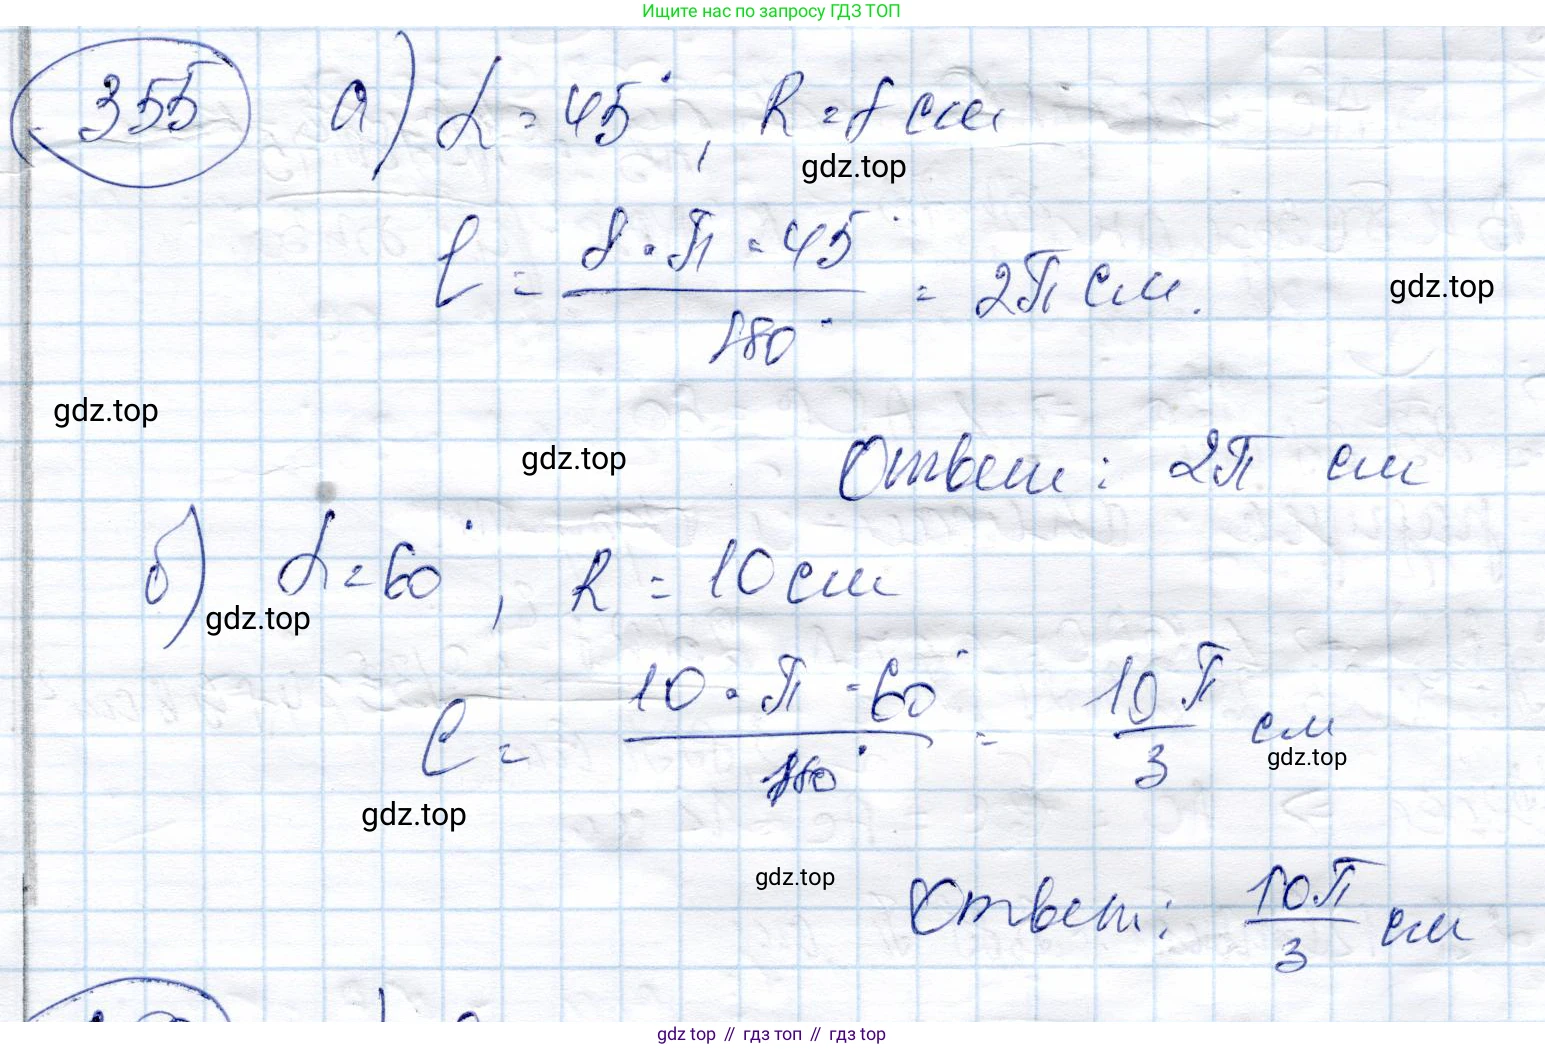 Ищите нас по запросу ГДЗ ТОП
355 а) α = 45°, R = 8 см
gdz.top
ℓ = 8 · π · 45° / 180° = 2π см.
gdz.top
gdz.top
gdz.top
Ответ: 2π см
б) α = 60°, R = 10 см
gdz.top
ℓ = 10 · π · 60° / 180° = 10π / 3 см
gdz.top
gdz.top
gdz.top
Ответ: 10π / 3 см
gdz top // гдз топ // гдз top